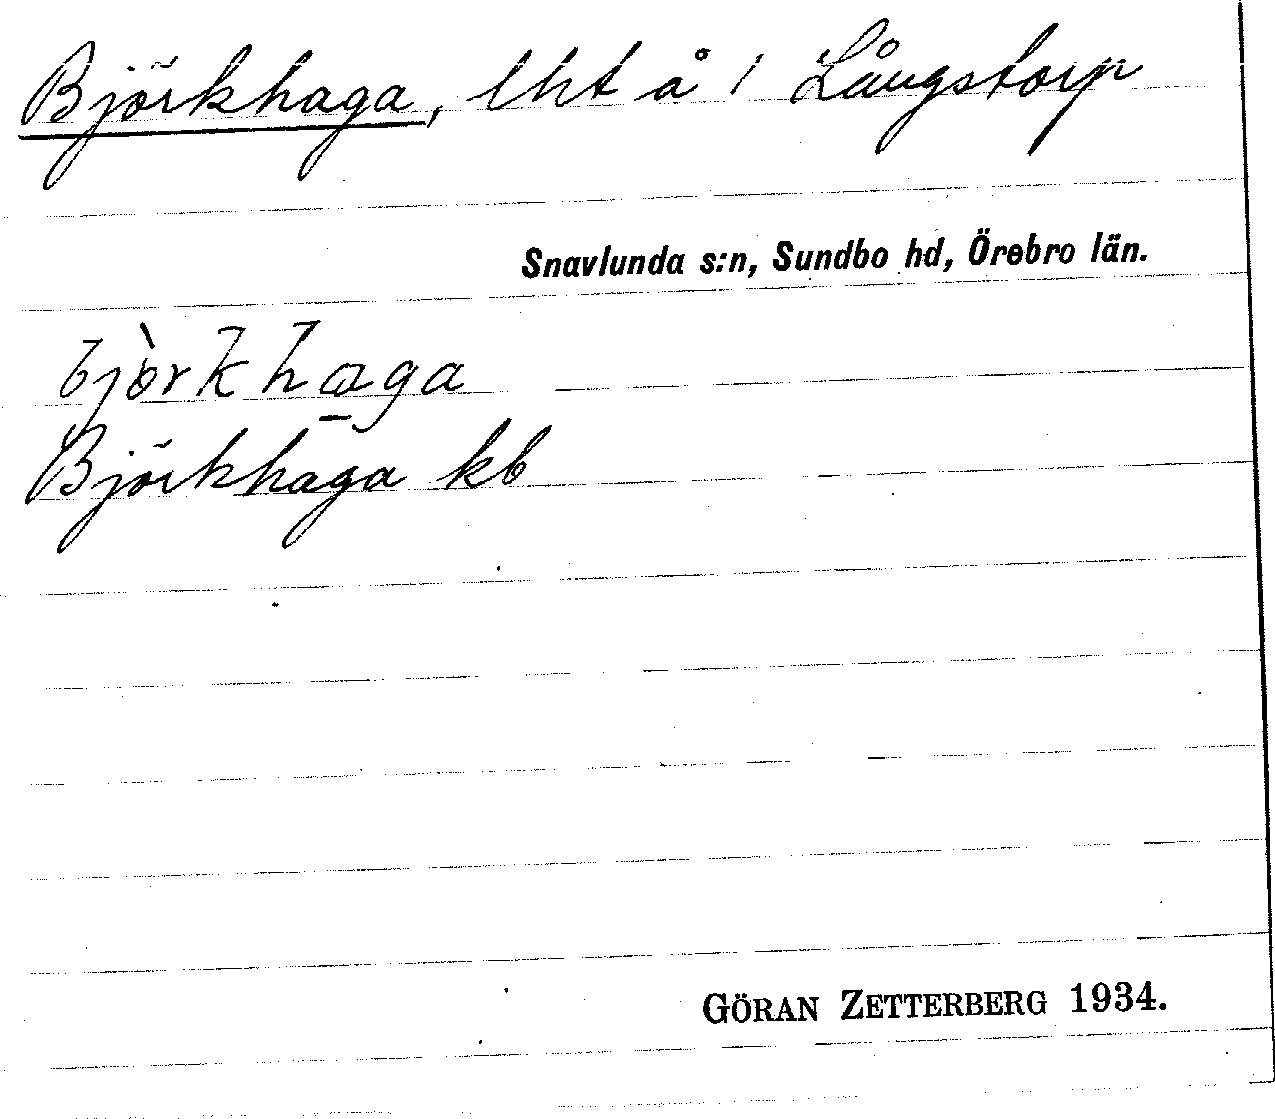 Björkhaga, lht å 1 Långstorp
Snavlunda s:n, Sundbo hd, Örebro län.
bjòrkhaga
Björkhaga kb
GÖRAN ZETTERBERG 1934.